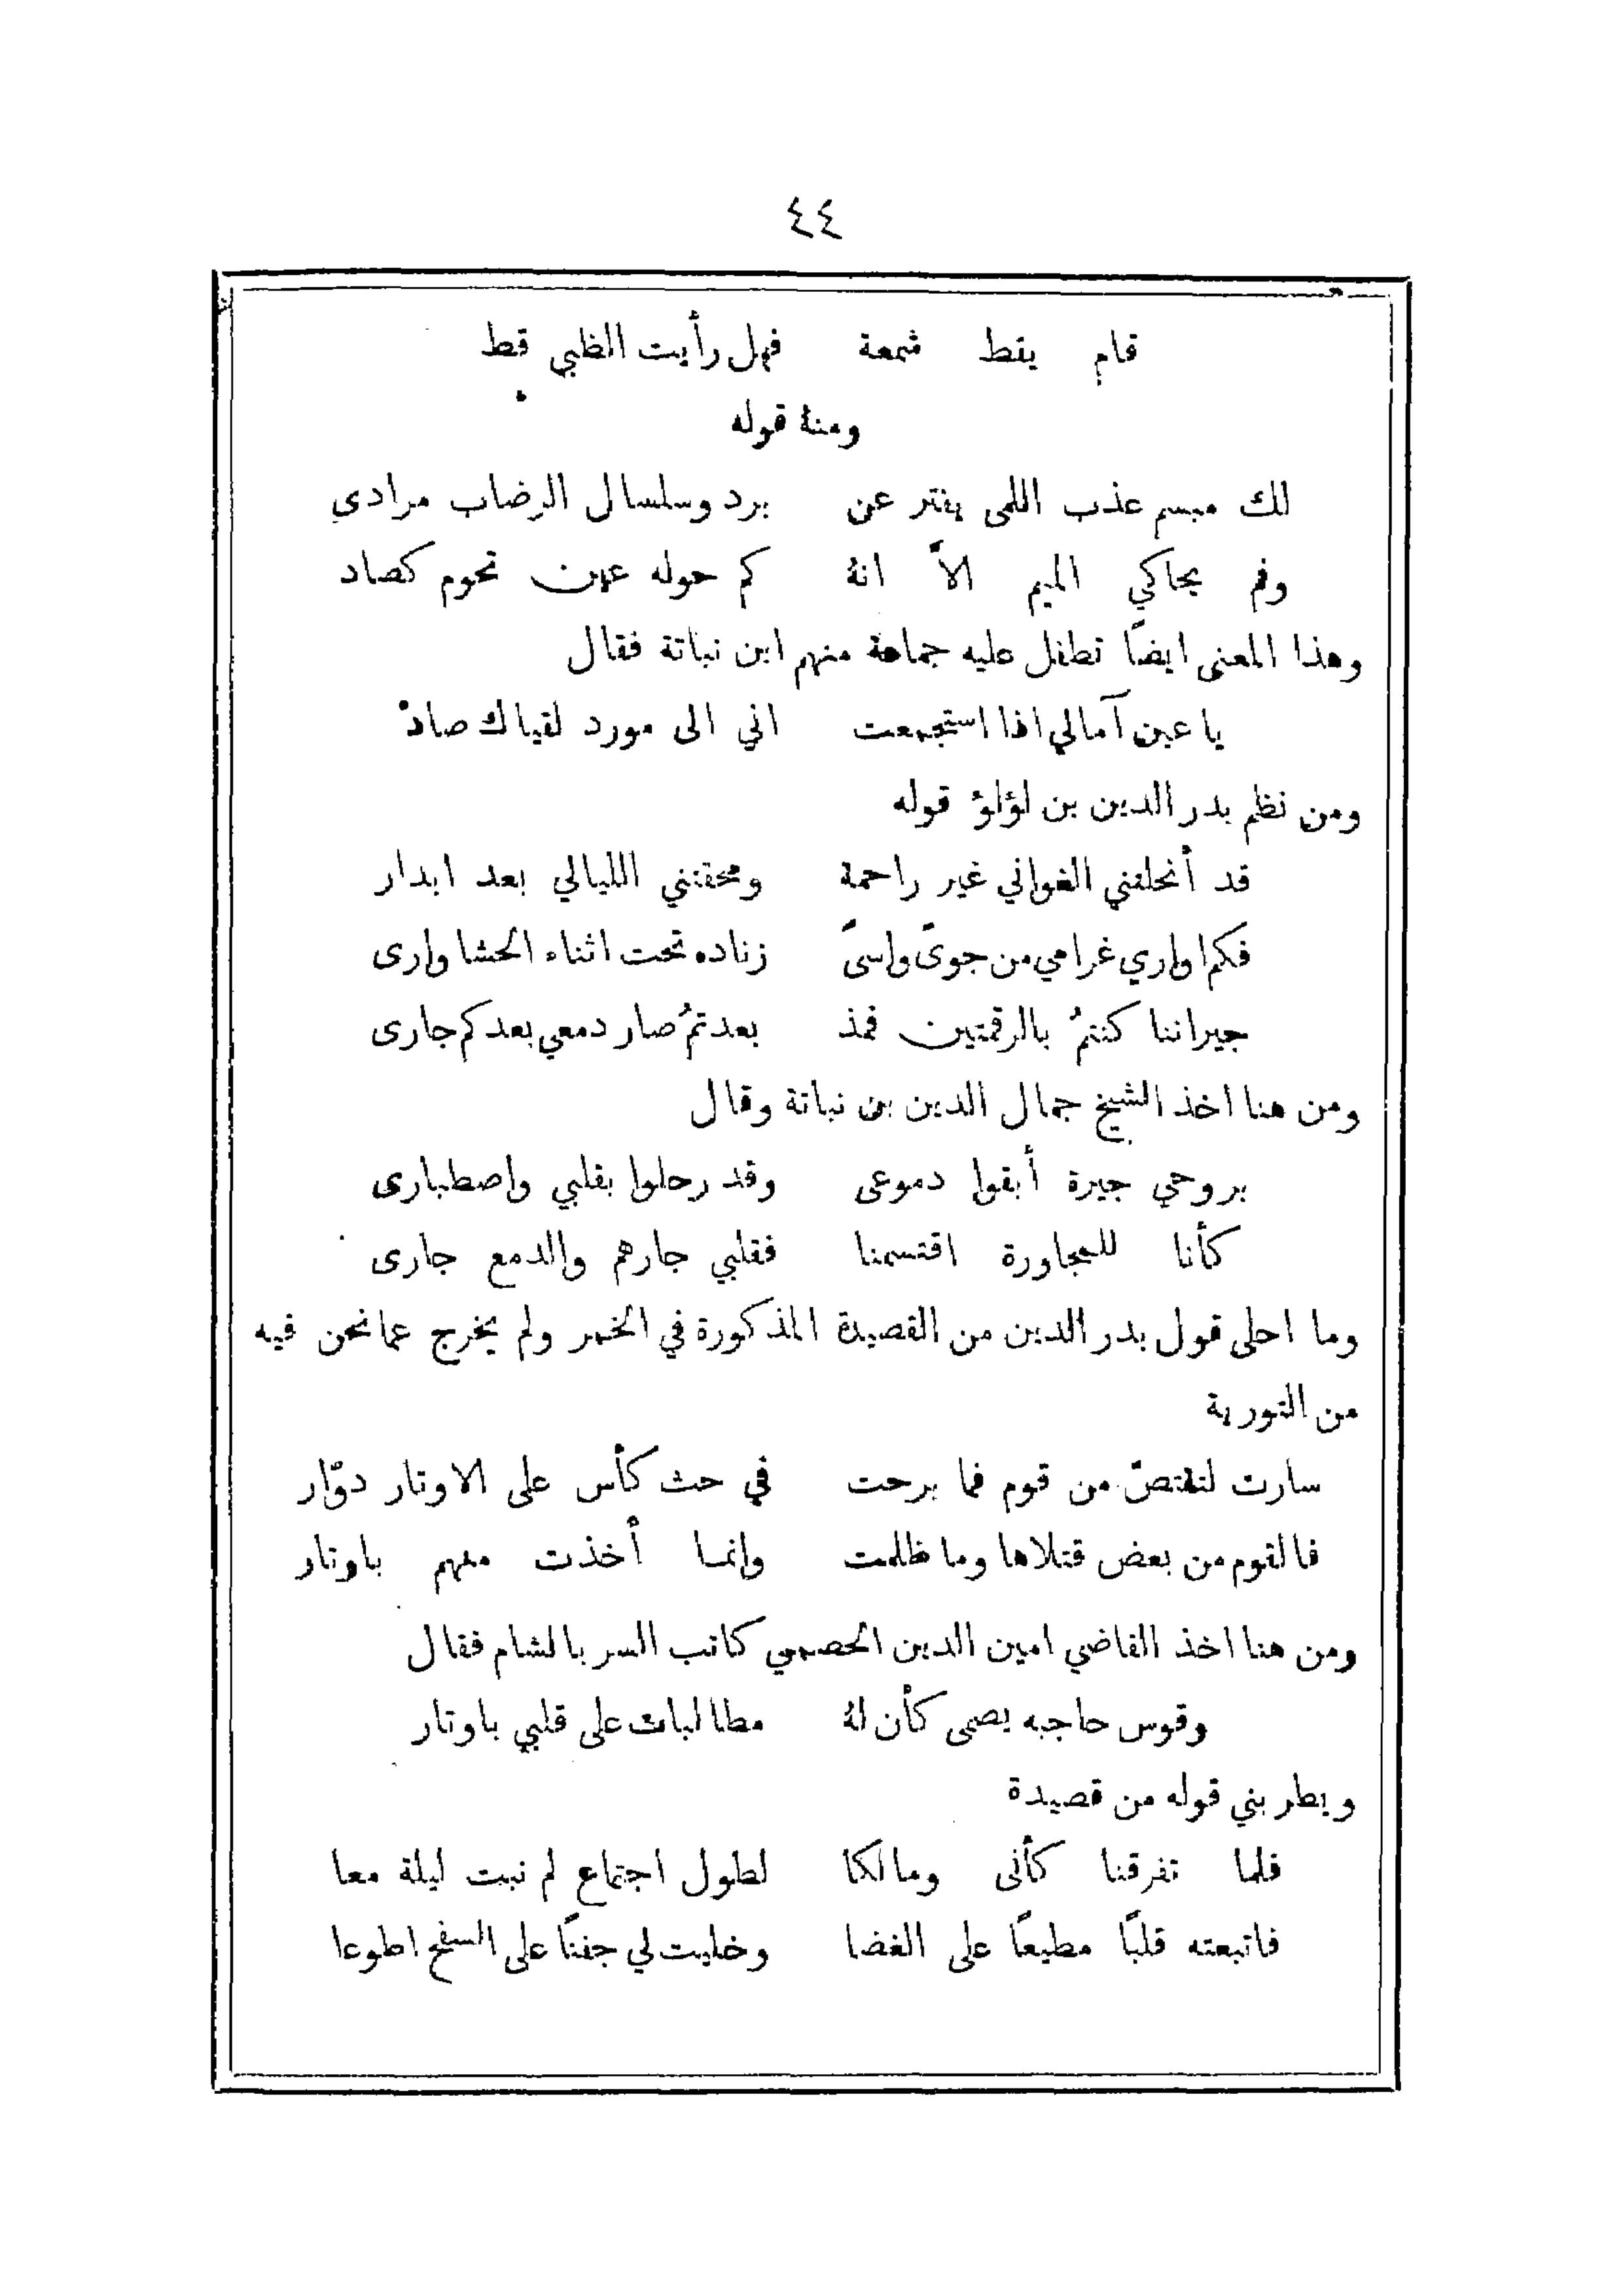 ٤٤
قام يقط شمعة فهل رأيت الظبي قط
ومنهُ قوله
لك مبسم عذب اللمى يفتر عن برد وسلسال الرضاب مرادي
وفم يحاكي الميم الاَّ انهُ كم حوله عين تحوم كصاد
وهذا المعنى ايضًا تطفل عليه جماعة منهم ابن نباتة فقال
يا عين آمالي اذا استجمعت اني الى مورد لقياك صادْ
ومن نظم بدر الدين بن لؤلؤ قوله
قد أنحلتني الغواني غير راحمة ومحقتني الليالي بعد ابدار
فكم اواري غرامي من جوىً واسىً زناده تحت اثناء الحشا وارى
جيراننا كنتمُ بالرقمتين فمذ بعدتمُ صار دمعي بعدكم جارى
ومن هنا اخذ الشيخ جمال الدين بن نباتة وقال
بروحي جيرة أبقوا دموعى وقد رحلوا بقلبي واصطبارى
كأنا للمجاورة اقتسمنا فقلبي جارهم والدمع جارى
وما احلى قول بدر الدين من القصيدة المذكورة في الخمر ولم يخرج عما نحن فيه
من التورية
سارت لتقتصّ من قوم فما برحت في حث كأس على الاوتار دوّار
فالقوم من بعض قتلاها وما ظلمت وانما أخذت منهم باوتار
ومن هنا اخذ القاضي امين الدين الحصمي كاتب السر بالشام فقال
وقوس حاجبه يصمى كأن لهُ مطالبات على قلبي باوتار
ويطربني قوله من قصيدة
فلما تفرقنا كأنى ومالكا لطول اجتماع لم نبت ليلة معا
فاتبعته قلبًا مطيعًا على الغضا وخليت لي جفنًا على السفح اطوعا